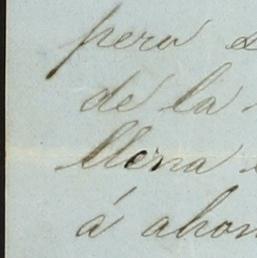 pero
de la
llena
á ahor